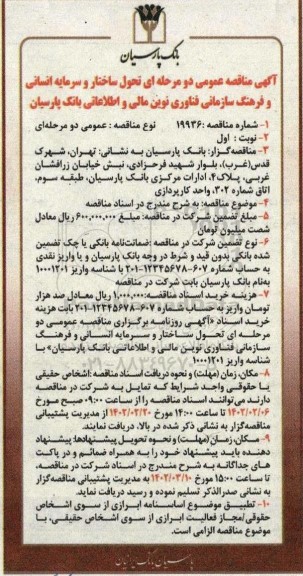 بانک پارسیان
آگهی مناقصه عمومی دو مرحله ای تحول ساختار و سرمایه انسانی
و فرهنگ سازمانی فناوری نوین مالی و اطلاعاتی بانک پارسیان
۱- شماره مناقصه :۱۹۹۳۶ نوع مناقصه : عمومی دو مرحله‌ای
۲- نوبت : اول
۳- مناقصه‌گزار: بانک پارسیان به نشانی: تهران، شهرک
قدس(غرب)، بلوار شهید فرحزادی، نبش خیابان زرافشان
غربی، پلاک۴، ادارات مرکزی بانک پارسیان، طبقه سوم،
اتاق شماره ۳۰۲، واحد کارپردازی
۴- موضوع مناقصه: به شرح مندرج در اسناد مناقصه
۵- مبلغ تضمین شرکت در مناقصه: مبلغ ۶۰۰,۰۰۰,۰۰۰ ریال معادل
شصت میلیون تومان
۶- نوع تضمین شرکت در مناقصه :ضمانت‌نامه بانکی یا چک تضمین
شده بانکی بدون قید و شرط در وجه بانک پارسیان و یا واریز نقدی
به حساب شماره ۶۰۷-۱۲۳۴۵۶۷۸-۲۰۱ با شناسه واریز ۱۰۰۰۱۲۰۱
به‌نام بانک پارسیان بابت شرکت در مناقصه
۷- هزینه خرید اسناد مناقصه:۱,۰۰۰,۰۰۰ ریال معادل صد هزار
تومان واریز به حساب شماره ۶۰۷-۱۲۳۴۵۶۷۸-۲۰۱ بابت هزینه
خرید اسناد «آگهی روزنامه برگزاری مناقصه عمومی دو
مرحله‌ای تحول ساختار و سرمایه انسانی و فرهنگ
سازمانی فناوری نوین مالی و اطلاعاتی بانک پارسیان» با
شناسه واریز ۱۰۰۰۱۲۰۱
۸- مکان، زمان (مهلت) و نحوه دریافت اسناد مناقصه :اشخاص حقیقی
یا حقوقی واجد شرایط که تمایل به شرکت در مناقصه
دارند می‌توانند اسناد مناقصه را از ساعت ۰۹:۰۰ صبح مورخ
۱۴۰۲/۰۲/۰۶ تا ساعت ۱۴:۰۰ مورخ ۱۴۰۲/۰۲/۲۰ از مدیریت پشتیبانی
مناقصه‌گزار به نشانی ذکر شده در بالا، دریافت نمایند.
۹- مکان، زمان (مهلت) و نحوه تحویل پیشنهادها: پیشنهاد
دهنده باید پیشنهاد خود را به همراه ضمائم و در پاکت
های جداگانه به شرح مندرج در اسناد شرکت در مناقصه،
تا ساعت ۱۵:۰۰ مورخ ۱۴۰۲/۰۳/۱۰ به مدیریت پشتیبانی مناقصه‌گزار
به نشانی صدرالذکر تسلیم نموده و رسید دریافت نماید.
۱۰- تطبیق موضوع اساسنامه ابرازی از سوی اشخاص
حقوقی/مجاز فعالیت ابرازی از سوی اشخاص حقیقی، با
موضوع مناقصه الزامی است.